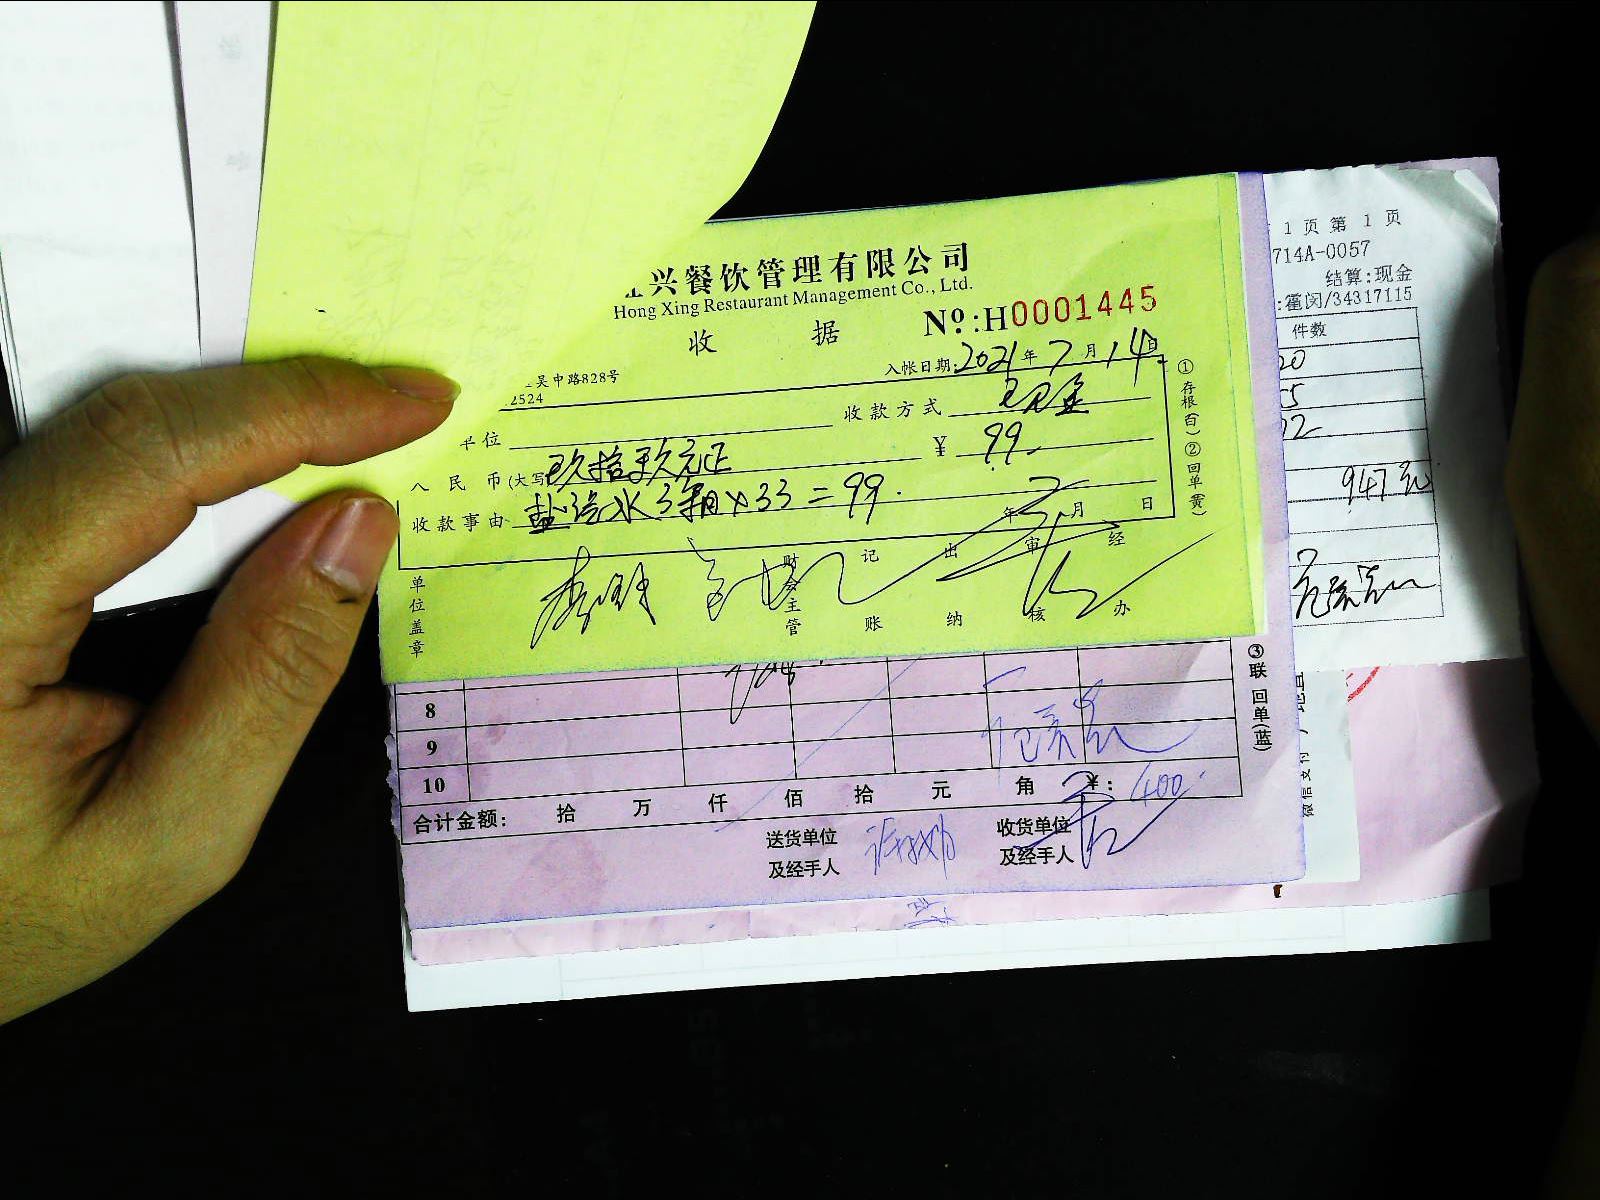 兴餐饮管理有限公司
Hong Xing Restaurant Management Co., Ltd.
收 据
№:H0001445
吴中路828号
2524
入帐日期:2021年7月14日
单位
收款方式 现金
人民币(大写)玖拾玖元正
¥ 99
收款事由 盐汽水3箱×33=99.
年 月 日
单位盖章
财会主管
记账
出纳
审核
经办
①存根(白)②回单(黄)
8
9
10
合计金额: 拾 万 仟 佰 拾 元 角 ¥: 400
送货单位及经手人
收货单位及经手人
③联 回单(蓝)
1 页 第 1 页
714A-0057
结算:现金
/34317115
件数
947元